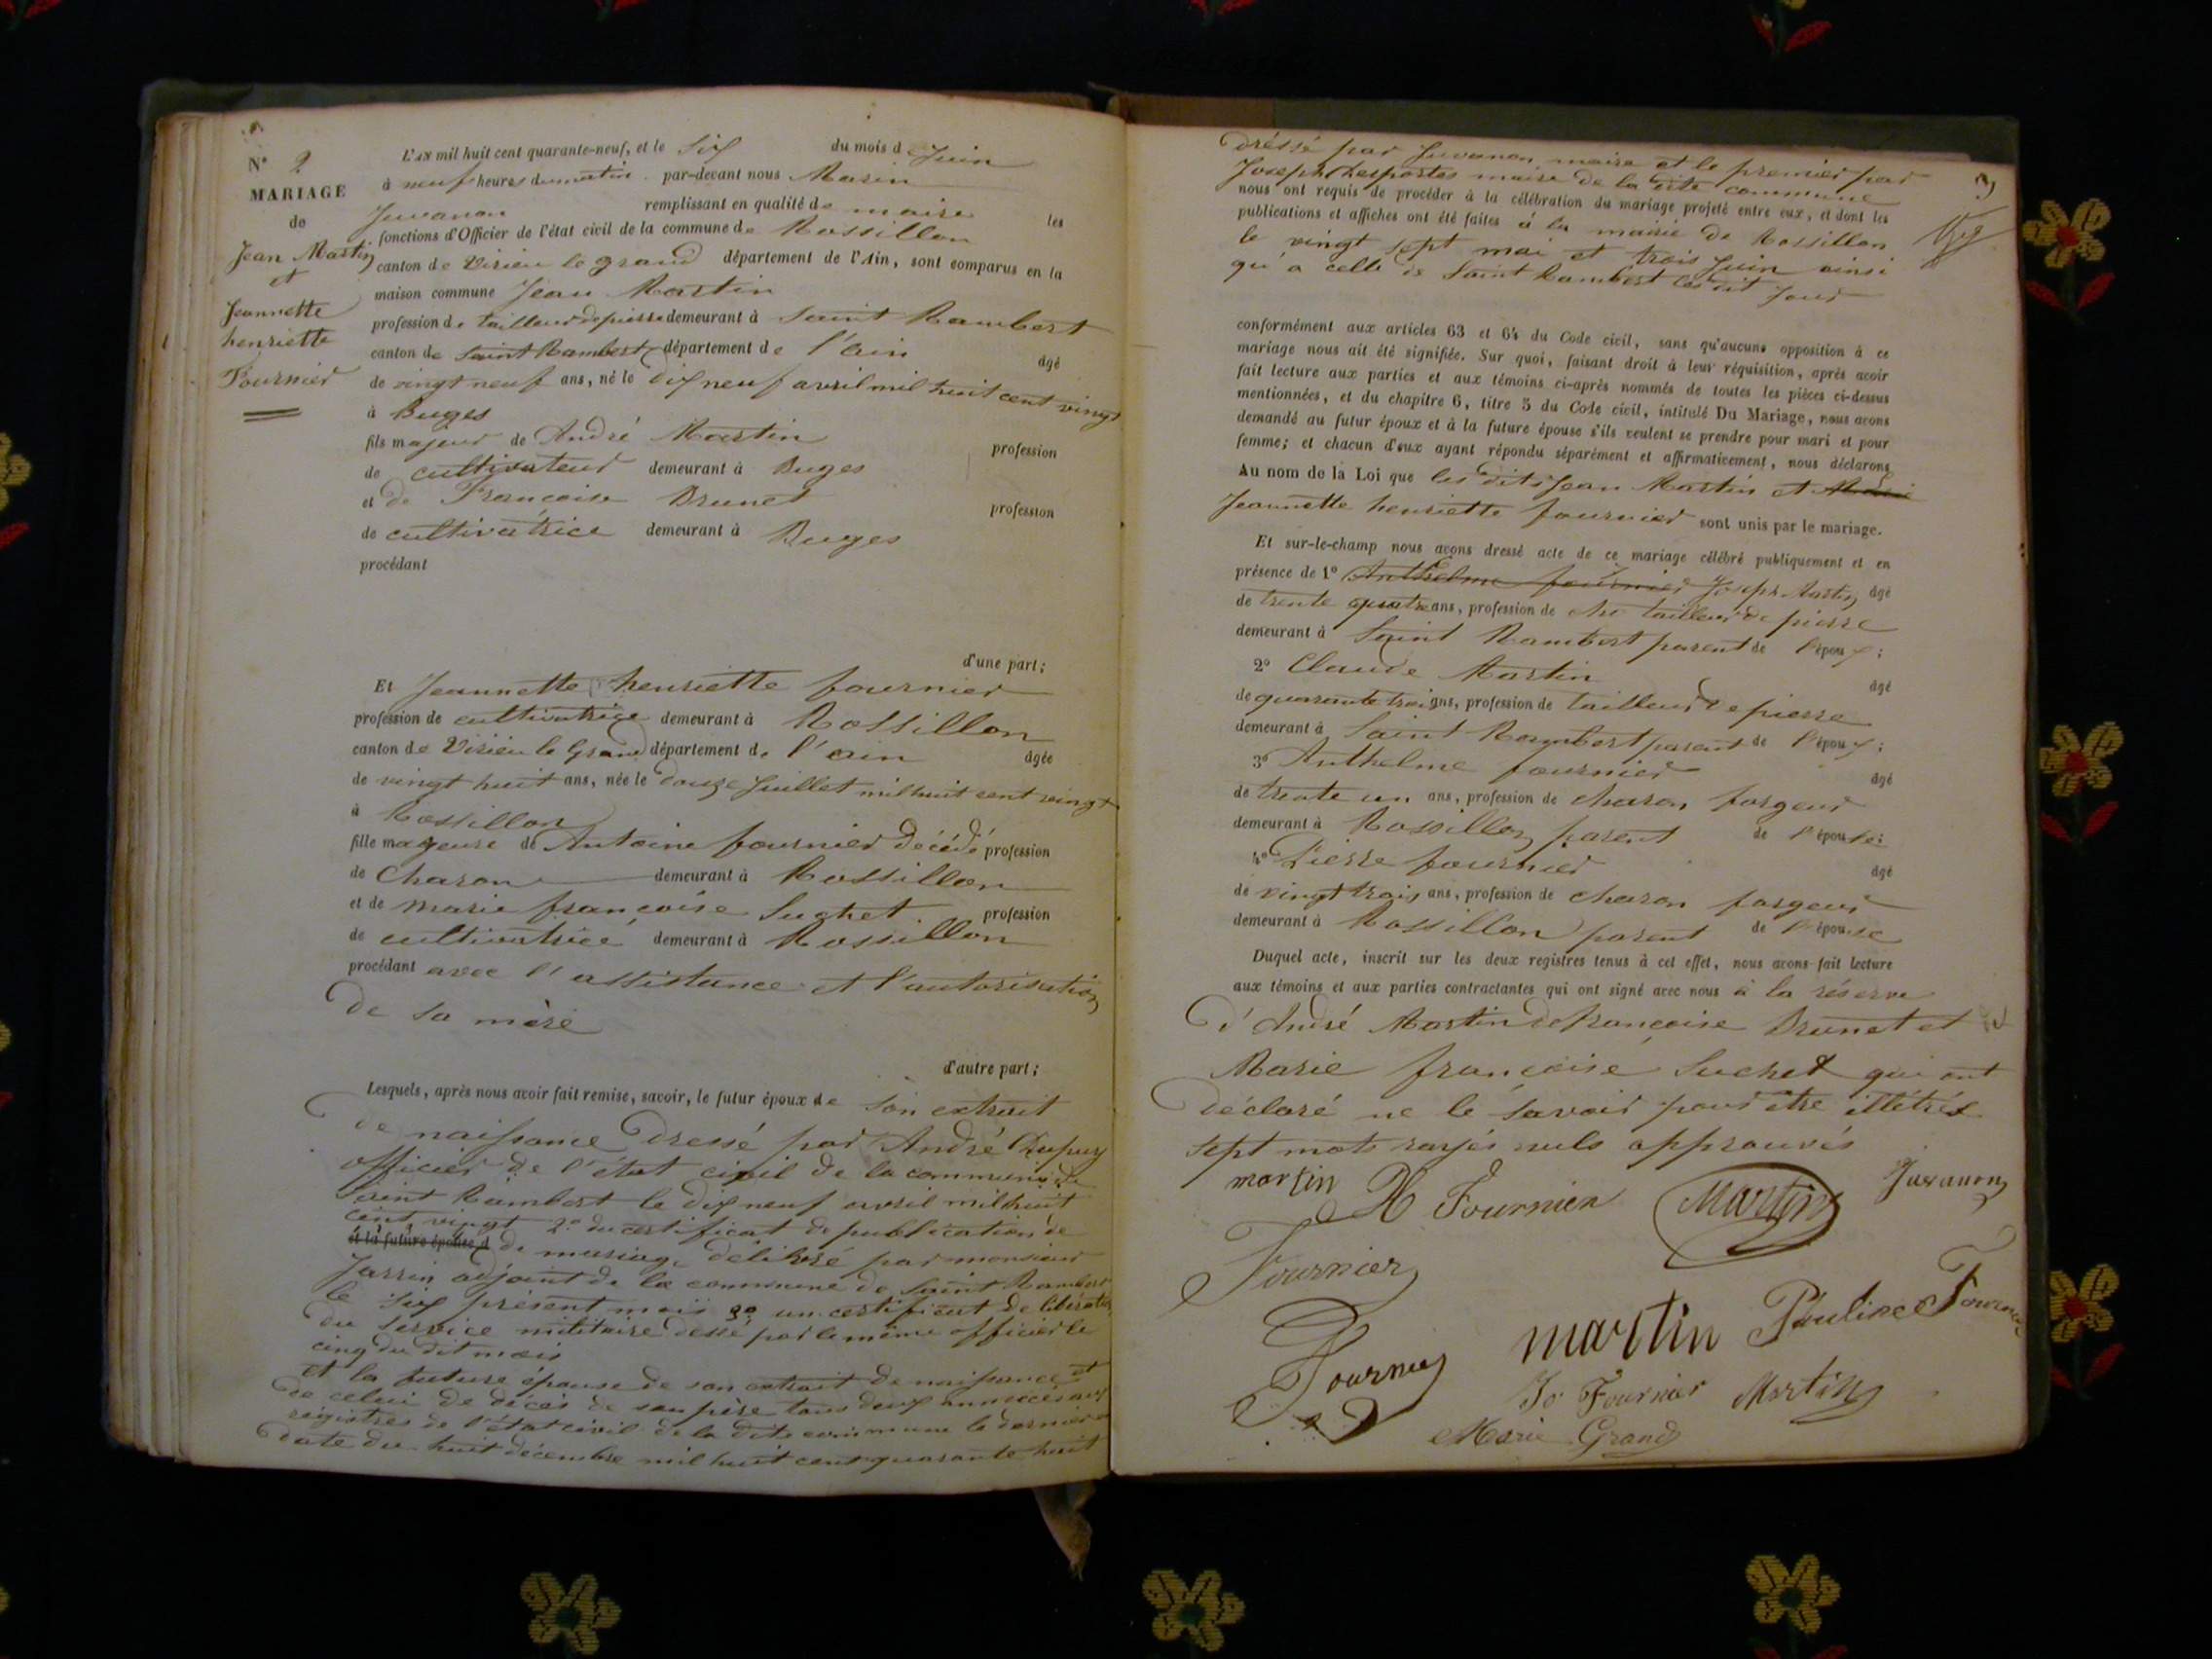 N° 2
MARIAGE
de
Jean Martin
et
Jeannette
henriette
Fournier
L'AN mil huit cent quarante-neuf, et le Six du mois d Juin
à neuf heures du matin par-devant nous Marin
Juvanon remplissant en qualité de maire les
fonctions d'Officier de l'état civil de la commune de Rossillon
canton de Virieu le grand département de l'Ain, sont comparus en la
maison commune Jean Martin
profession de tailleur de pierre demeurant à Saint Rambert
canton de Saint Rambert département de l'ain agé
de vingt neuf ans, né le dix neuf avril mil huit cent vingt
à Buges
fils majeur de André Martin profession
de cultivateur demeurant à Buges
et de Françoise Brunet profession
de cultivatrice demeurant à Buges
procédant
d'une part;
Et Jeannette henriette fournier
profession de cultivatrice demeurant à Rossillon
canton de Virieu le Grand département de l'ain agée
de vingt huit ans, née le douze Juillet mil huit cent vingt
à Rossillon
fille mageure de Antoine fournier décédé profession
de Charon demeurant à Rossillon
et de marie françoise Suchet profession
de cultivatrice demeurant à Rossillon
procédant avec l'assistance et l'autorisation
de sa mère
d'autre part;
Lesquels, après nous avoir fait remise, savoir, le futur époux de son extrait
de naissance dressé par André Dupuy
officier de l'état civil de la commune de
Saint Rambert le dix neuf avril mil huit
cent vingt 2° du certificat de publication de
et la future épouse d de mariag délibré par monsieur
Jarrin adjoint de la commune de Saint Rambert
le Six présent mois 3° un certificat de libération
du service militaire dessé par le même officier le
cinq du dit mois
et la future épouse de son extrait de naissance et
de celui de décès de son père tous deux annexés aux
registres de l'état civil de la dite commune le dernier
date du huit décembre mil huit cent quarante huit
3
dréssé par Juvanon maire et le premier par
Joseph Desportes maire de la dite commune
nous ont requis de procéder à la célébration du mariage projeté entre eux, et dont les
publications et affiches ont été faites à la mairie de Rossillon
le vingt sept mai et trois Juin ainsi
qu'a celle de Saint Rambert les dit Jour
conformément aux articles 63 et 64 du Code civil, sans qu'aucune opposition à ce
mariage nous ait été signifiée. Sur quoi, faisant droit à leur réquisition, après avoir
fait lecture aux parties et aux témoins ci-après nommés de toutes les pièces ci-dessus
mentionnées, et du chapitre 6, titre 5 du Code civil, intitulé Du Mariage, nous avons
demandé au futur époux et à la future épouse s'ils veulent se prendre pour mari et pour
femme; et chacun d'eux ayant répondu séparément et affirmativement, nous déclarons
Au nom de la Loi que les dits Jean Martin et Marie
Jeannette henriette fournier sont unis par le mariage.
Et sur-le-champ nous avons dressé acte de ce mariage célébré publiquement et en
présence de 1° Anthelme fournier Joseph Martin agé
de trente quatre ans, profession de tailleur de pierre
demeurant à Saint Rambert parent de l'époux;
2° Claude Martin agé
de quarante trois ans, profession de tailleur de pierre
demeurant à Saint Rambert parent de l'époux;
3° Anthelme fournier agé
de trente un ans, profession de charon forgeur
demeurant à Rossillon parent de l'épouse;
4° Pierre fournier agé
de vingt trois ans, profession de charon forgeur
demeurant à Rossillon parent de l'épouse
Duquel acte, inscrit sur les deux registres tenus à cet effet, nous avons fait lecture
aux témoins et aux parties contractantes qui ont signé avec nous à la réserve
d'André Martin de françoise Brunet et
Marie françoise Suchet qui ont
déclaré ne le savoir pour etre illétrés
sept mots rayés nuls approuvés
martin H Fournier Martin Juvanon
Fournier
Fournier martin Pauline Fournier
Jo Fournier Martin
Marie Grand